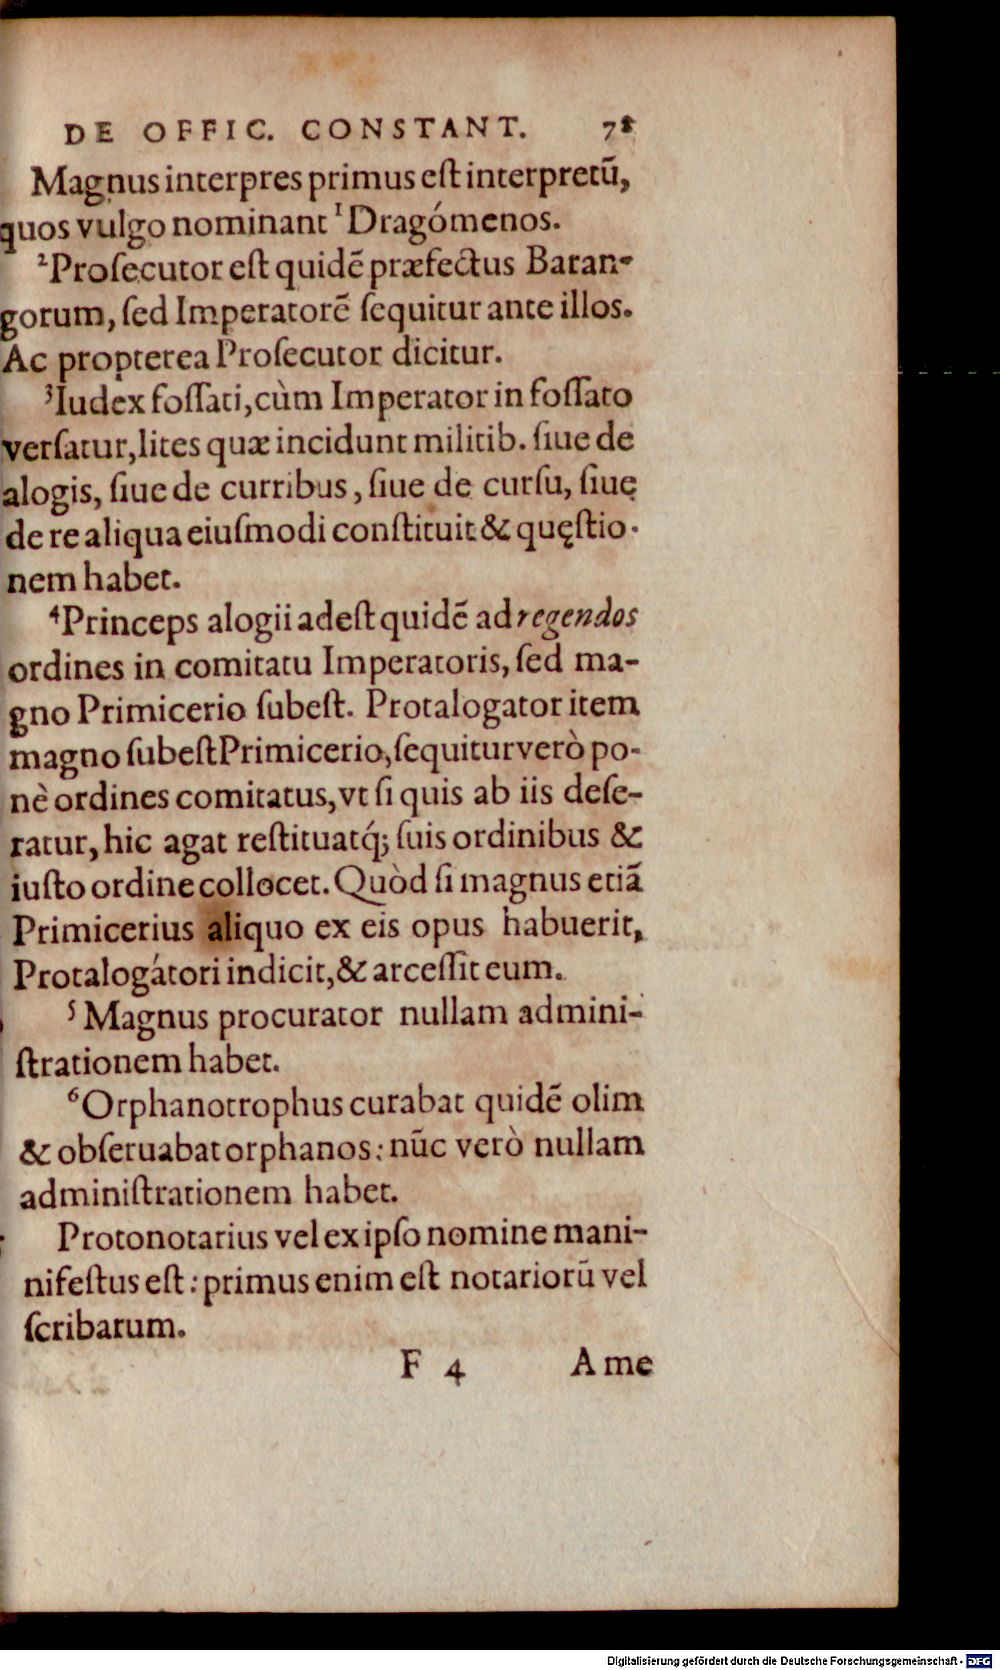 DE OFFIC. CONSTANT. 71
Magnus interpres primus eſt interpretū,
quos vulgo nominant ¹Dragómenos.
²Proſecutor eſt quidē præfectus Baran-
gorum, ſed Imperatorē ſequitur ante illos.
Ac propterea Proſecutor dicitur.
³Iudex foſſati, cùm Imperator in foſſato
verſatur, lites quæ incidunt militib. ſiue de
alogis, ſiue de curribus, ſiue de curſu, ſiuę
de re aliqua eiuſmodi conſtituit & quęſtio-
nem habet.
⁴Princeps alogii adeſt quidē ad regendos
ordines in comitatu Imperatoris, ſed ma-
gno Primicerio ſubeſt. Protalogator item
magno ſubeſt Primicerio, ſequitur verò po-
nè ordines comitatus, vt ſi quis ab iis deſe-
ratur, hic agat reſtituatq́; ſuis ordinibus &
iuſto ordine collocet. Quòd ſi magnus etiā
Primicerius aliquo ex eis opus habuerit,
Protalogátori indicit, & arceſſit eum.
⁵Magnus procurator nullam admini-
ſtrationem habet.
⁶Orphanotrophus curabat quidē olim
& obſeruabat orphanos: nūc verò nullam
adminiſtrationem habet.
Protonotarius vel ex ipſo nomine mani-
nifeſtus eſt: primus enim eſt notariorū vel
ſcribarum.
F 4 A me
Digitalisierung gefördert durch die Deutsche Forschungsgemeinschaft - DFG